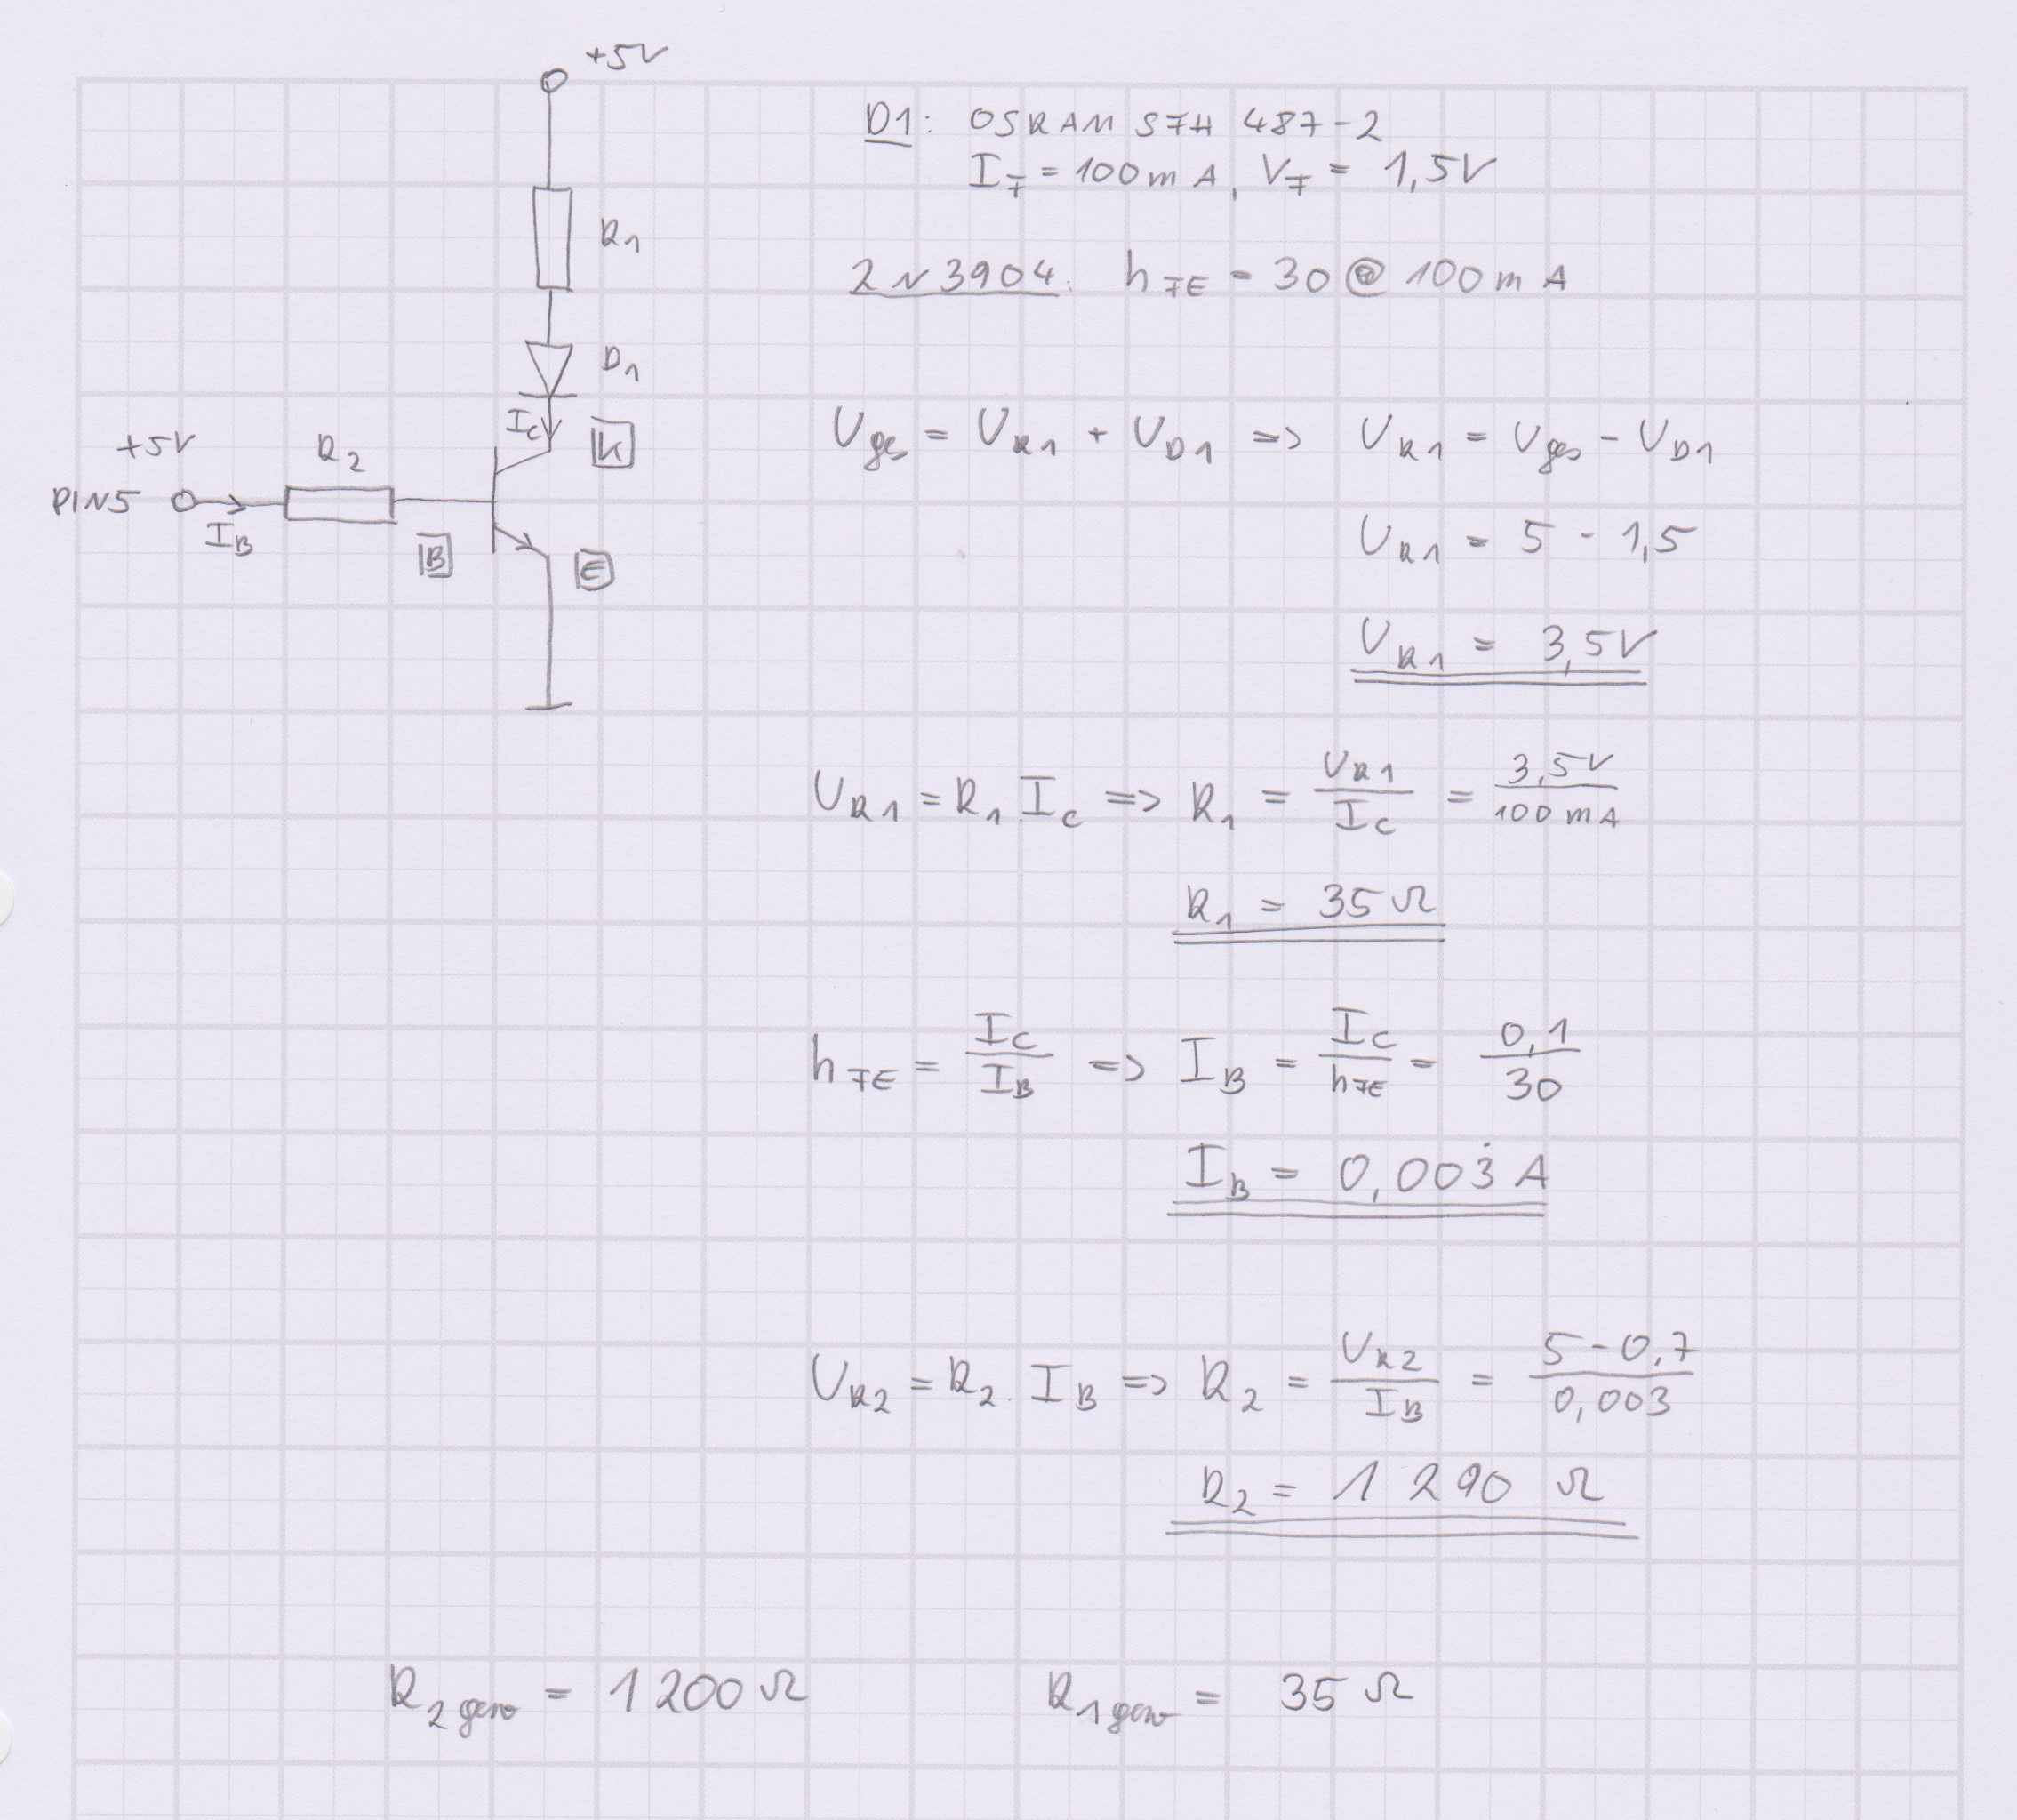 +5V
R1
D1
IC
K
+5V
R2
PIN5
IB
B
E
D1: OSRAM SFH 487-2
IF = 100mA, VF = 1,5V
2N3904: hFE = 30 @ 100mA
Uges = UR1 + UD1 => UR1 = Uges - UD1
UR1 = 5 - 1,5
UR1 = 3,5V
UR1 = R1 · IC => R1 = UR1 / IC = 3,5V / 100mA
R1 = 35Ω
hFE = IC / IB => IB = IC / hFE = 0,1 / 30
IB = 0,003̇ A
UR2 = R2 · IB => R2 = UR2 / IB = 5 - 0,7 / 0,003
R2 = 1290 Ω
R2gew = 1200Ω R1gew = 35Ω